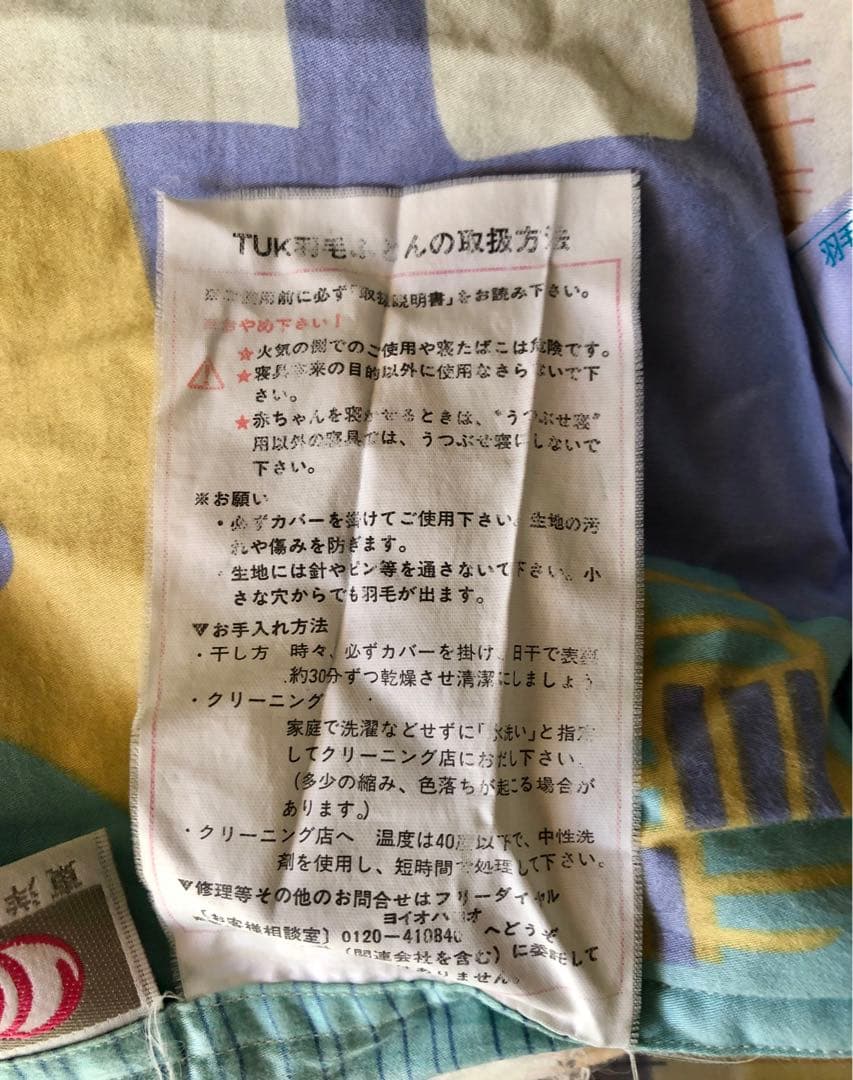 TUK羽毛ふとんの取扱方法
※ご使用前に必ず「取扱説明書」をお読み下さい。
おやめ下さい!
★火気の側でのご使用や寝たばこは危険です。
★寝具本来の目的以外に使用なさらないで下
さい。
★赤ちゃんを寝かせるときは、“うつぶせ寝”
用以外の寝具では、うつぶせ寝にしないで
下さい。
※お願い
・必ずカバーを掛けてご使用下さい。生地の汚
れや傷みを防ぎます。
・生地には針やピン等を通さないで下さい。小
さな穴からでも羽毛が出ます。
▼お手入れ方法
・干し方 時々、必ずカバーを掛け、日干で表裏
約30分ずつ乾燥させ清潔にしましょう
・クリーニング
家庭で洗濯などせずに「水洗い」と指定
してクリーニング店にお出し下さい。
(多少の縮み、色落ちが起こる場合が
あります。)
・クリーニング店へ 温度は40度以下で、中性洗
剤を使用し、短時間で処理して下さい。
▼修理等その他のお問合せはフリーダイヤル
ヨイオハ
[お客様相談室] 0120-41084 へどうぞ
(関連会社を含む)に委託して
ありません。
羽毛